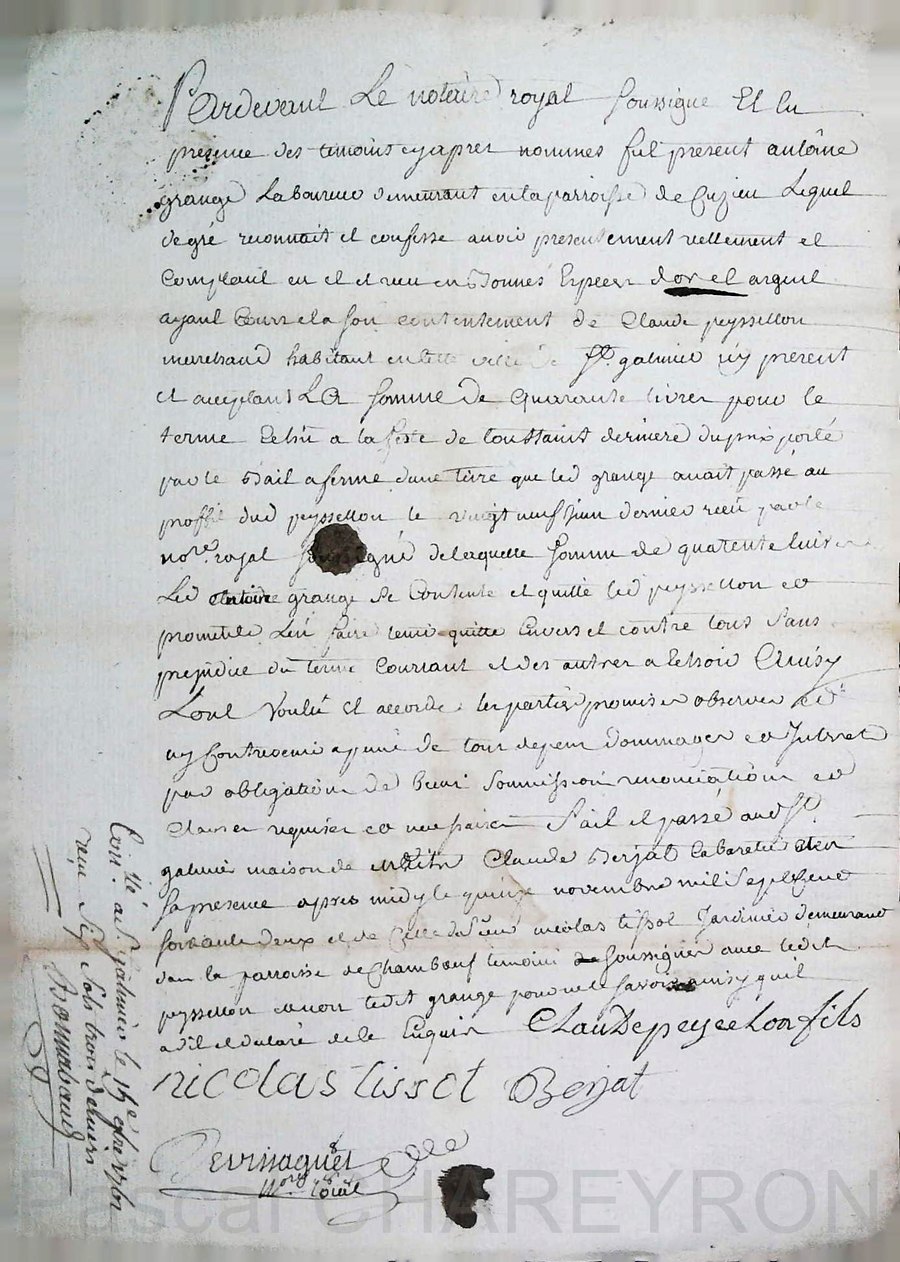 Pardevant Le notaire royal soussigné Et en
presence des temoins cyapres nommes fut present antoine
grange Laboureur demeurant en la parroisse de Cuzieu Lequel
de gré reconnait et confesse avoir presentement reellement et
Comptant eu et et receu en bonnes Especes dor et argent
ayant Cours et a son contentement de Claude peyssellon
marchand habitant en cette ville de St. galmier icy present
et acceptant La somme de quarante livres pour le
terme Echu a la feste de toussaint derniere du prix porté
par le Bail a ferme dune terre que led grange avait passé au
proffit dud peyssellon le vingt neuf Juin dernier receu par le
nore. royal de laquelle somme de quarente livres
Led antoine grange se Contente et quitte led peyssellon et
promet de Len faire tenir quitte Envers et contre tous sans
prejudice du terme Courant et des autres a Echoir Ainsy
Lont Voulu et accordé les parties promis et observer et
ny Contrevenir a peine de tous depens dommages et Interets
par obligation de biens soumissions renonciations et
Clauses requises et necessaires fait et passé aud St.
galmier maison de Claude Berjat Cabaretier et en
sa presence apres midy le quinze novembre mil sept cent
soixante deux et de Celle de sieur nicolas tissot Jardinier demeurant
dans la parroisse de Chambœuf temoins soussignés avec ledit
peyssellon et non ledit grange pour ne le savoir ainsy quil
a dit et declaré de ce Enquis Claude peyselon fils
nicolas tissot Berjat
nore. Roial
Con.lé a St galmier le
receu six sols trois deniers
Pascal CHAREYRON